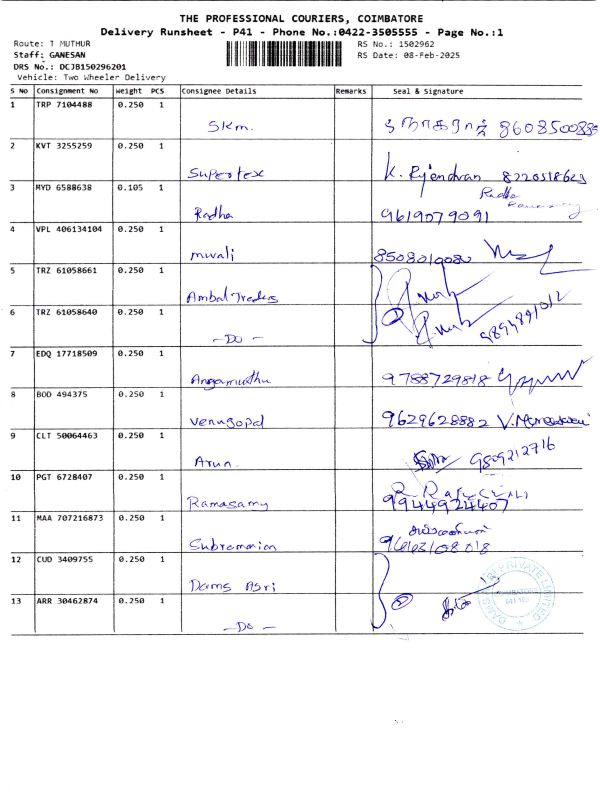 THE PROFESSIONAL COURIERS, COIMBATORE
Delivery Runsheet - P41 - Phone No.:0422-3505555 - Page No.:1
Route: T MUTHUR
RS No.: 1502962
Staff: GANESAN
RS Date: 08-Feb-2025
DRS No.: DCJB150296201
Vehicle: Two Wheeler Delivery
S No Consignment No Weight PCS Consignee Details Remarks Seal & Signature
1 TRP 7104488 0.250 1
SKm. 8608500885
2 KVT 3255259 0.250 1
Supertex K. Rajendran 8220518623
3 MYD 6588638 0.105 1
Radha
Radha 9619079091
4 VPL 406134104 0.250 1
murali 8508010080
5 TRZ 61058661 0.250 1
Ambal Traders
6 TRZ 61058640 0.250 1
- Do - 2 9894891012
7 EDQ 17718509 0.250 1
Angamuthu 9788729818
8 BOD 494375 0.250 1
Venugopal 9629628882
9 CLT 50064463 0.250 1
Arun. 9809212716
10 PGT 6728407 0.250 1
Ramasamy 9944924407
11 MAA 707216873 0.250 1
Subramanian
12 CUD 3409755 0.250 1
Dams Agri
13 ARR 30462874 0.250 1
- Do - 2
PRIVATE LIMITED